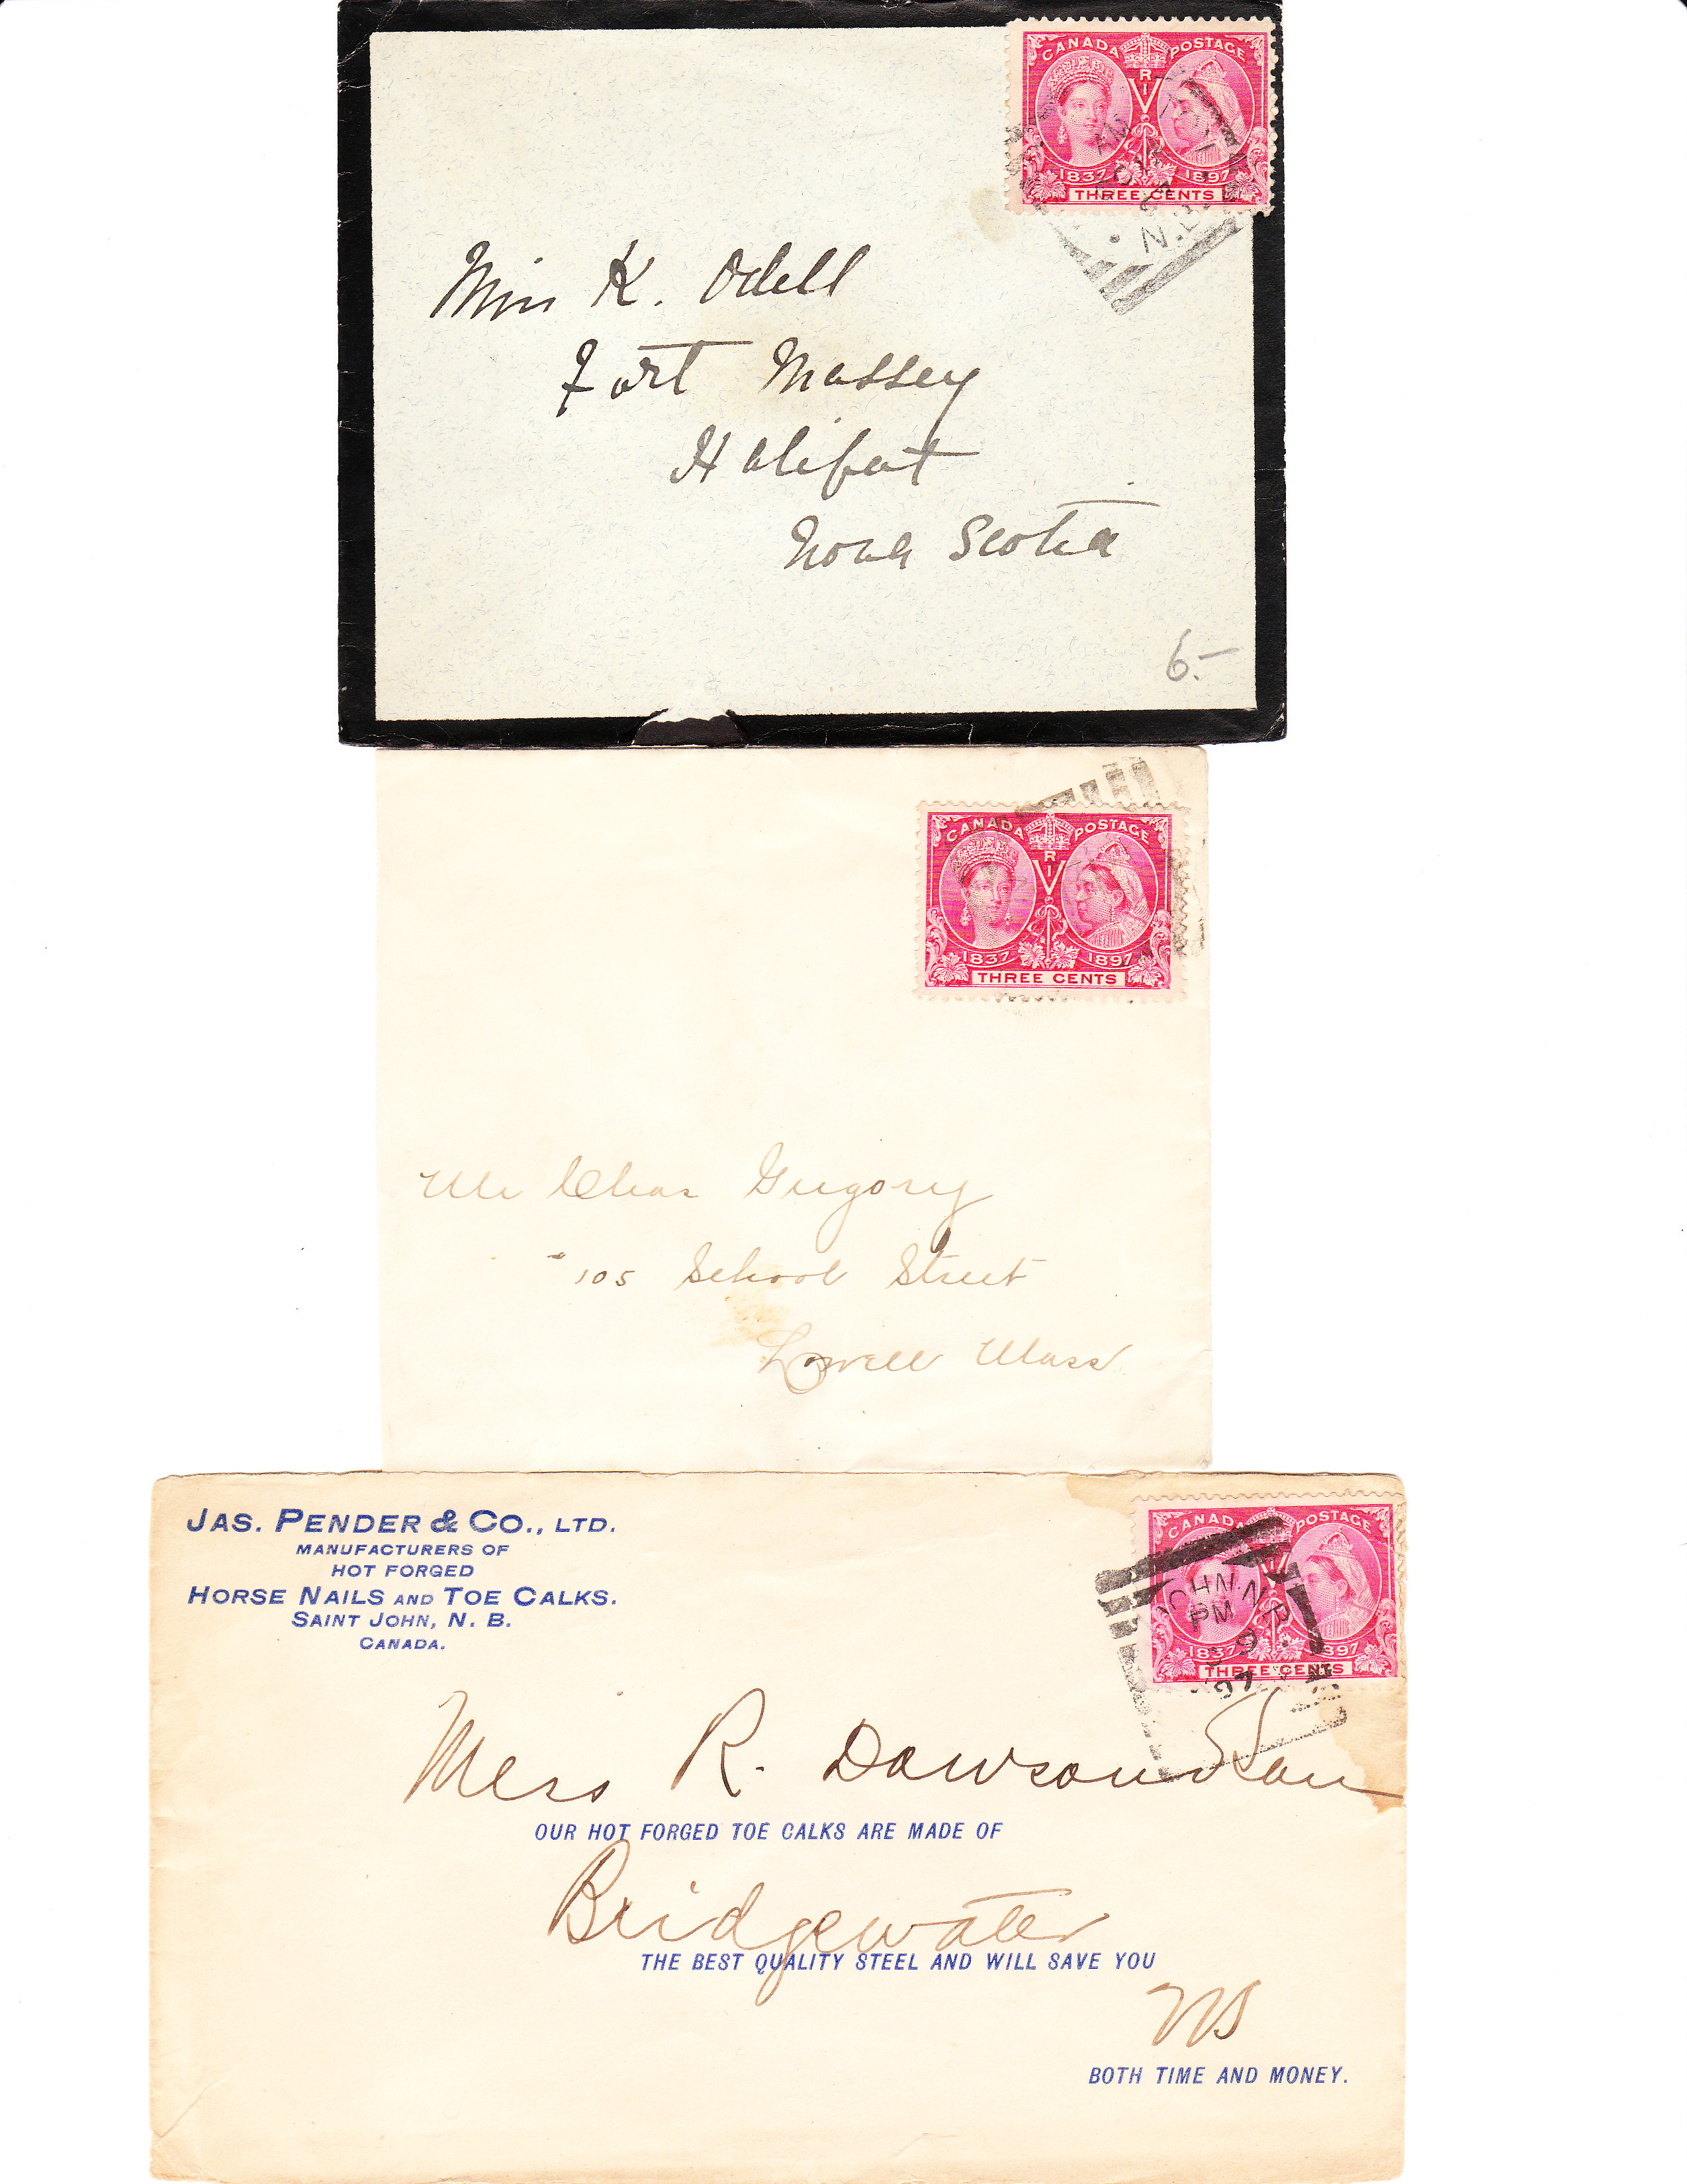 CANADA POSTAGE
R
V I
1837 1897
THREE CENTS
AM
N.B.
Miss K. Odell
Fort Massey
Halifax
Nova Scotia
6.-
CANADA POSTAGE
R
V I
1837 1897
THREE CENTS
Mr Chas Gregory
105 School Street
Lowell Mass
JAS. PENDER & CO., LTD.
MANUFACTURERS OF
HOT FORGED
HORSE NAILS AND TOE CALKS.
SAINT JOHN, N. B.
CANADA.
CANADA POSTAGE
1837 1897
THREE CENTS
JOHN. N.B.
PM
9
97
Mess R. Dawson & Son
OUR HOT FORGED TOE CALKS ARE MADE OF
Bridgewater
THE BEST QUALITY STEEL AND WILL SAVE YOU
NS
BOTH TIME AND MONEY.